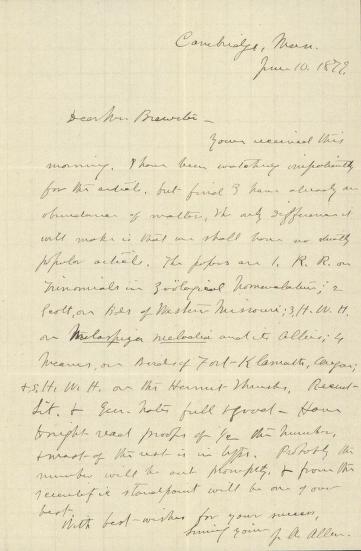 Cambridge, Mass.
June 10. 1879.
Dear Mr. Brewster –
Yours received this
morning. I have been watching impatiently
for the article, but find I have already an
abundance of matter. The only difference it
will make is that we shall have no strictly
popular article. The papers are 1. R. R. on
Trinomials in Zoölogical Nomenclature; 2
Scott, on Bds of Western Missouri; 3, H. W. H.
on Melospiza melodia and its Allies; 4
Mearns, on Birds of Fort Klamath, Oregon;
& 5, H. W. H. on the Hermit Thrushes. Recent
Lit. & Gen. Notes full & good – Have
to-night read proofs of the number,
& most of the rest is in type. Probably the
number will be out promptly, & from the
scientific standpoint will be one of our
best.
With best wishes for your success,
J. A. Allen.